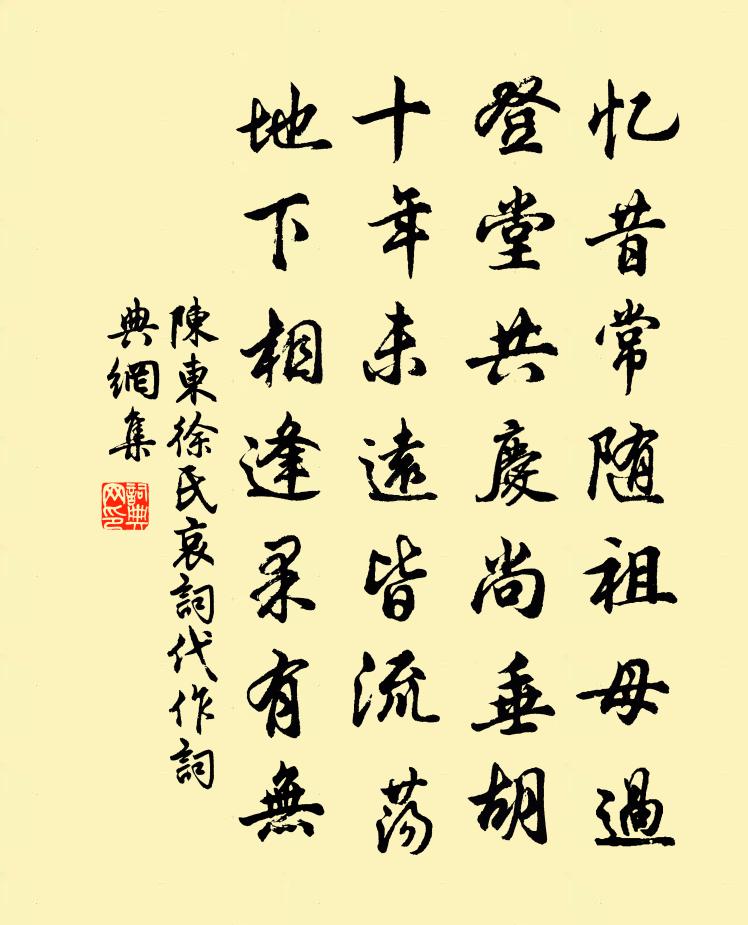 忆昔常随祖母過
登堂共慶尚垂胡
十年未遠皆流荡
地下相逢果有無
陳東徐氏哀詞代作詞
典網集
詞典
网印